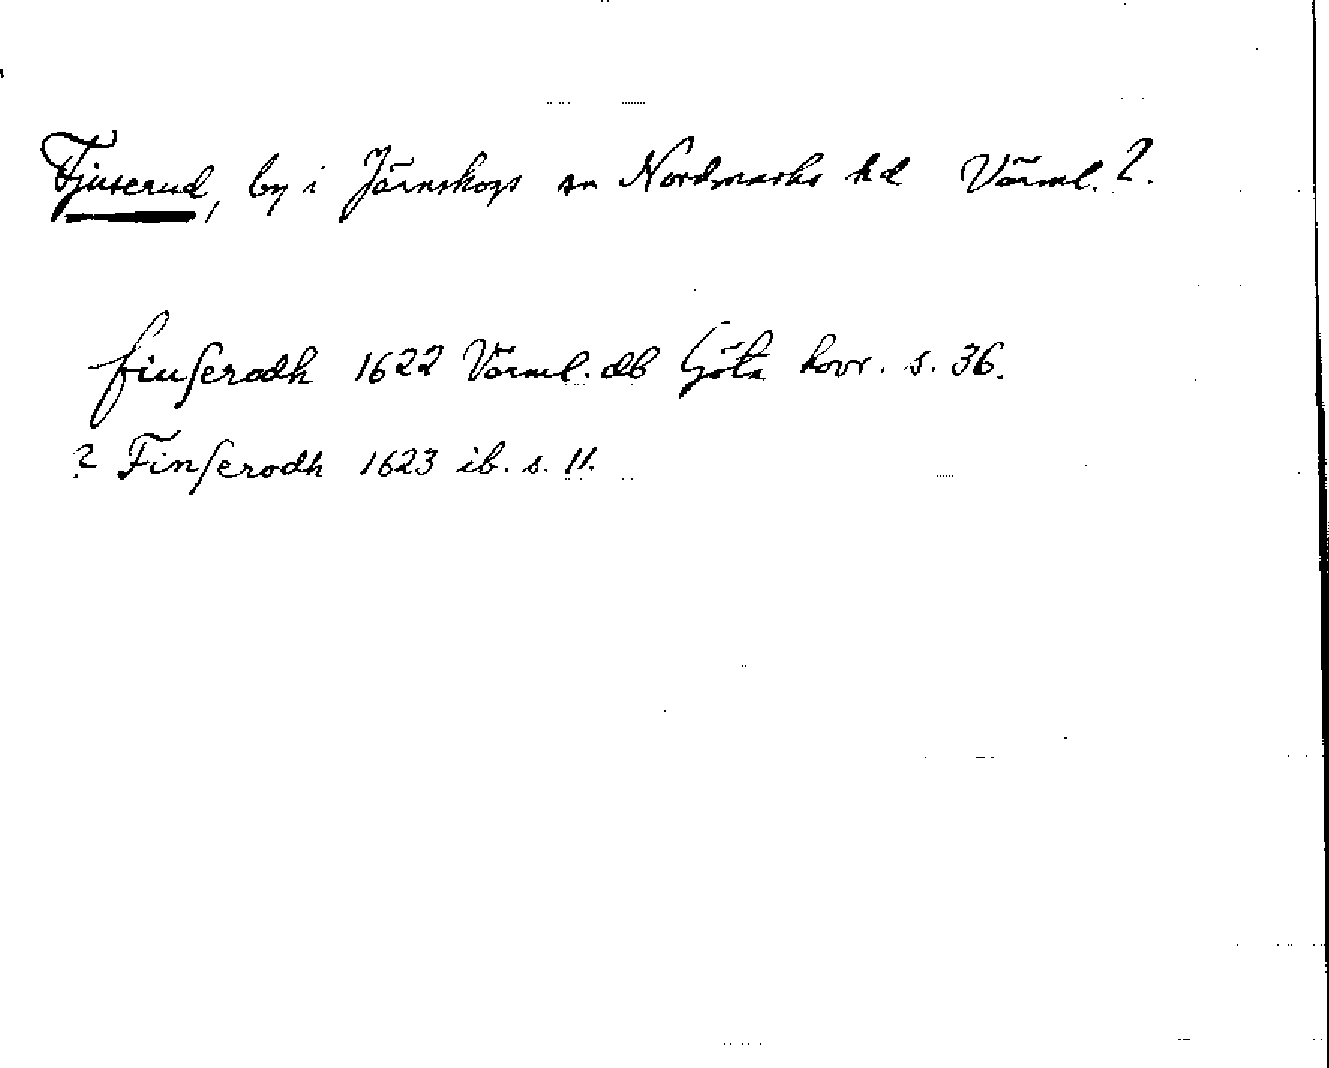 Fjuserud, by i Järnskogs sn Nordmarks hd Värml. ?.
fiuſerodh 1622 Värml. db Göta hovr. s. 36.
? Finſerodh 1623 ib. s. 11.